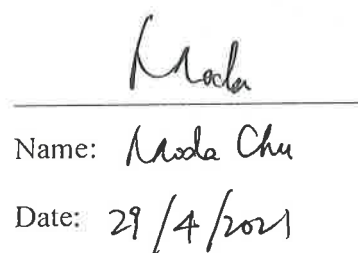 Moda
Name: Moda Chu
Date: 29/4/2021